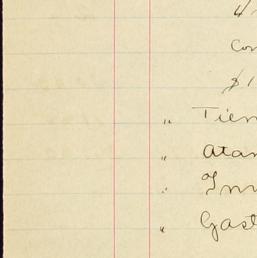 4
Con
$1
" Tien
" Atan
" Inn
" Gast